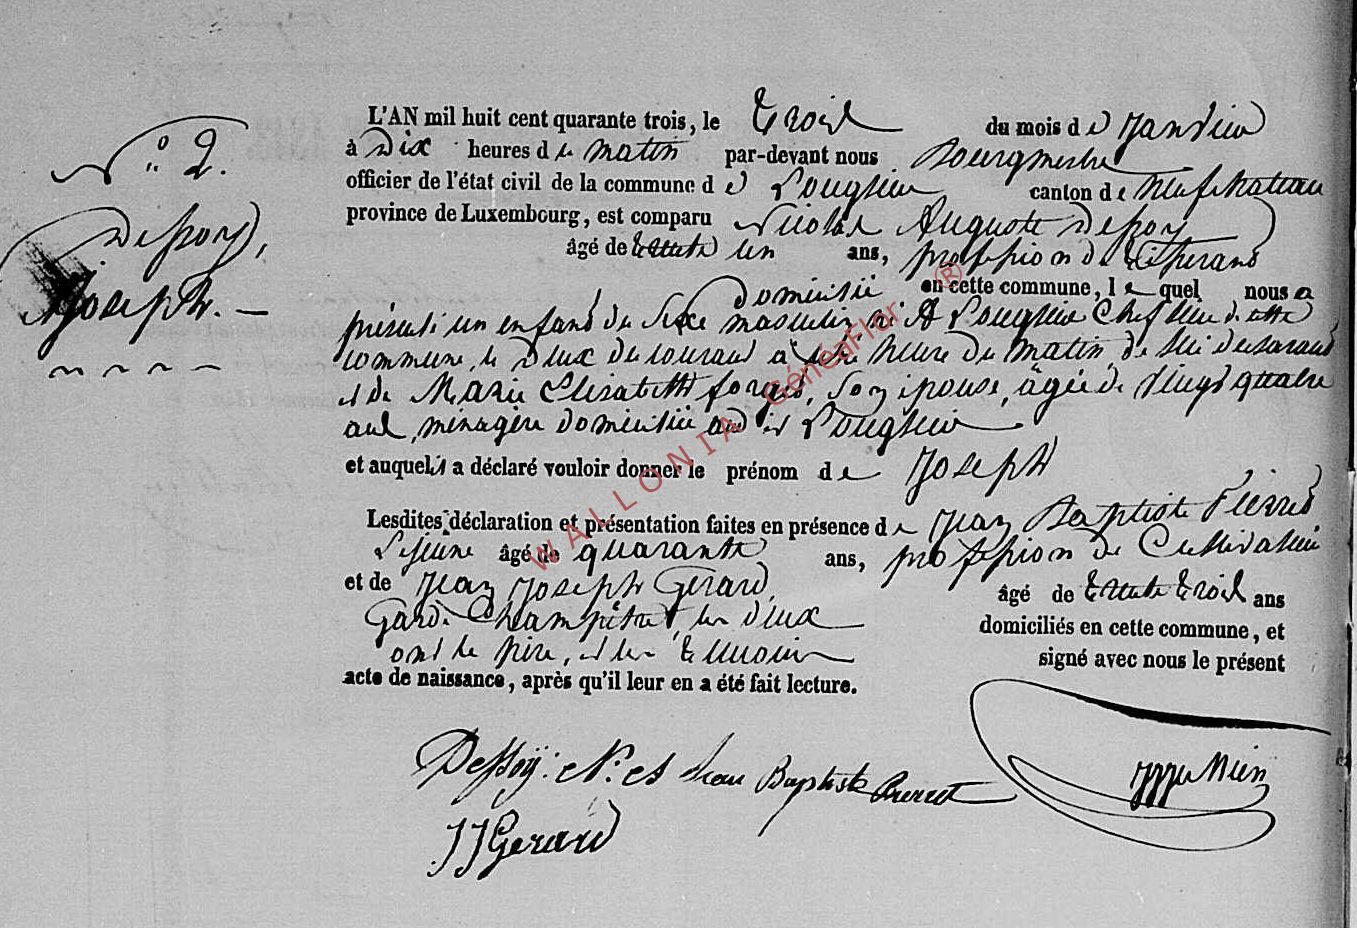 N° 2.
Dessoy,
Joseph. —
L'AN mil huit cent quarante trois, le trois du mois de Janvier
à dix heures du matin par-devant nous Bourgmestre
officier de l'état civil de la commune de Longlier canton de Neufchateau
province de Luxembourg, est comparu Nicolas Auguste Dessoy
âgé de trente un ans, profession de
domicilié en cette commune, lequel nous a
présenté un enfant du sexe masculin né à Longlier Chef lieu de cette
commune, le deux du courant à heure du matin de lui déclarant
et de Marie Elisabeth forget, son épouse, âgée de vingt quatre
ans, ménagère domiciliée à Longlier
et auquel il a déclaré vouloir donner le prénom de Joseph
Lesdites déclaration et présentation faites en présence de Jean Baptiste Pierret
Lejeune âgé de quarante ans, profession de Cultivateur
et de Jean Joseph Gerard, âgé de trente trois ans
Garde Champêtre, les deux domiciliés en cette commune, et
ont le père, et les témoins signé avec nous le présent
acte de naissance, après qu'il leur en a été fait lecture.
Dessoy: N: A Jean Baptiste Pierret
JJ Gerard
WALLONIA GénéaFlor ®